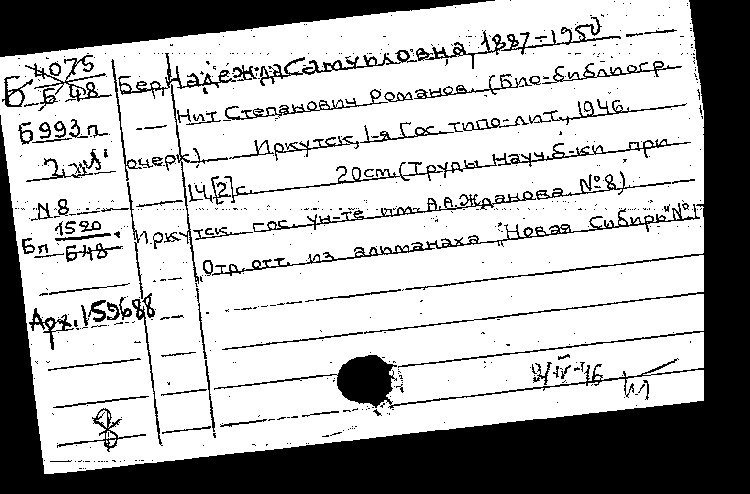 4075
Б Б 48
Бер, Надежда Самуиловна, 1887-1950
Б993п
Нит Степанович Романов. (Био-библиогр.
очерк). Иркутск, 1-я Гос. типо-лит., 1946.
14,[2]с. 20см. (Труды Науч. б-ки при
N8
Бп 1520
Б48
Иркутск. гос. ун-те им. А.А.Жданова. №8)
"Отд. отт. из альманаха "Новая Сибирь" №17
Арх. 159688
8/IV-46